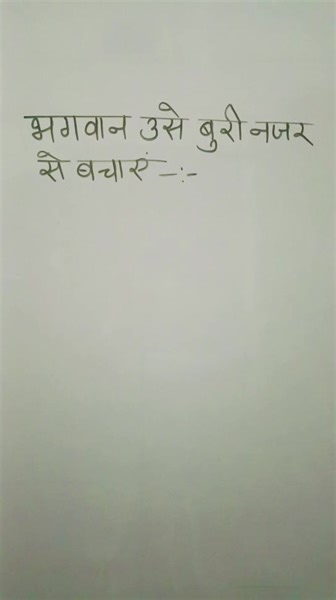 भगवान उसे बुरी नजर
से बचाएं -:-